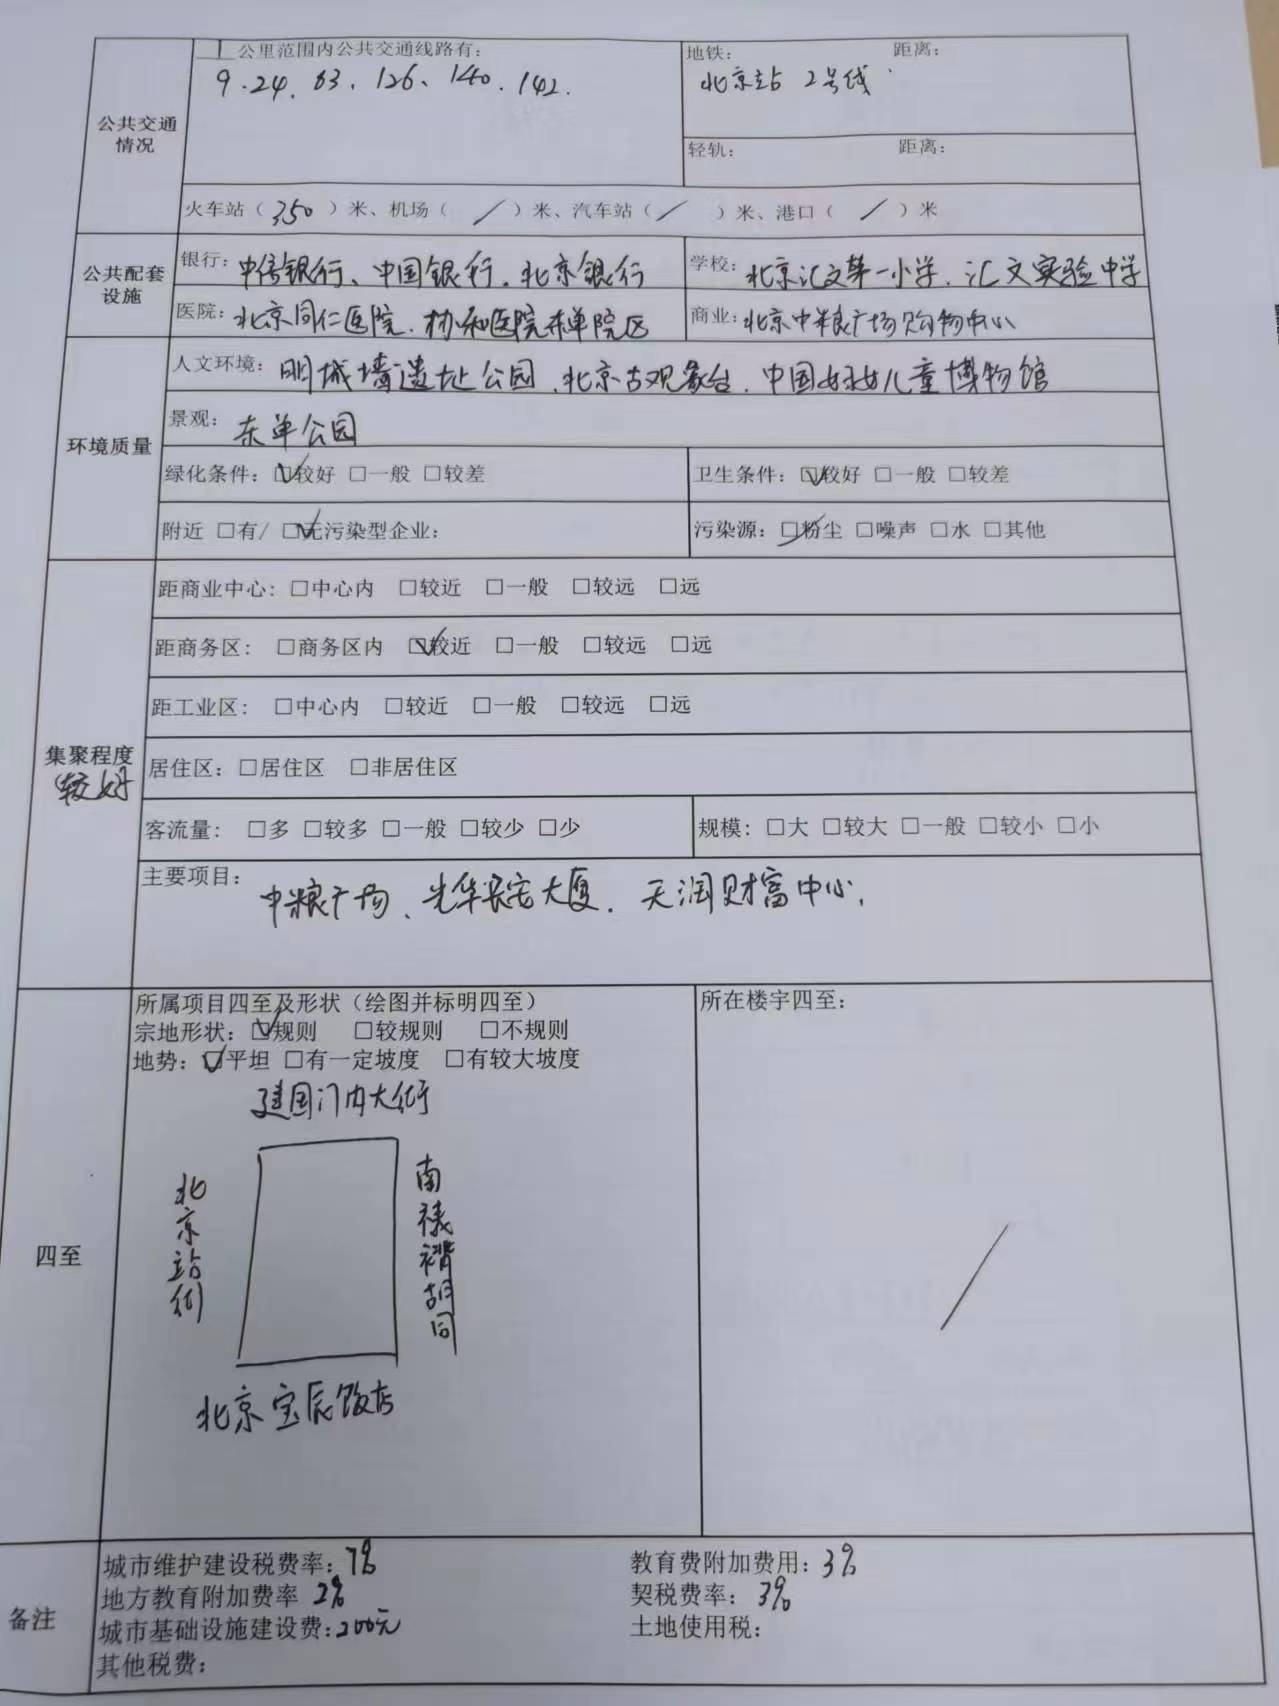 1 公里范围内公共交通线路有:
9.24、63、126、140、142.
地铁: 距离:
北京站 2号线
公共交通
情况
轻轨: 距离:
火车站(350)米、机场( / )米、汽车站( / )米、港口( / )米
公共配套
设施
银行: 中信银行、中国银行、北京银行
学校: 北京汇文第一小学、汇文实验中学
医院: 北京同仁医院、协和医院东单院区
商业: 北京中粮广场购物中心
环境质量
人文环境: 明城墙遗址公园、北京古观象台、中国妇女儿童博物馆
景观: 东单公园
绿化条件: ☑较好 □一般 □较差
卫生条件: ☑较好 □一般 □较差
附近 □有/ ☑无污染型企业:
污染源: ☑粉尘 □噪声 □水 □其他
集聚程度
(较好
距商业中心: □中心内 □较近 □一般 □较远 □远
距商务区: □商务区内 ☑较近 □一般 □较远 □远
距工业区: □中心内 □较近 □一般 □较远 □远
居住区: □居住区 □非居住区
客流量: □多 □较多 □一般 □较少 □少
规模: □大 □较大 □一般 □较小 □小
主要项目: 中粮广场、光华长安大厦、天润财富中心,
四至
所属项目四至及形状(绘图并标明四至)
宗地形状: ☑规则 □较规则 □不规则
地势: ☑平坦 □有一定坡度 □有较大坡度
建国门内大街
北京站街
南𬡂褙胡同
北京宝辰饭店
所在楼宇四至:
/
备注
城市维护建设税费率: 7% 教育费附加费用: 3%
地方教育附加费率 2% 契税费率: 3%
城市基础设施建设费: 200元 土地使用税:
其他税费: